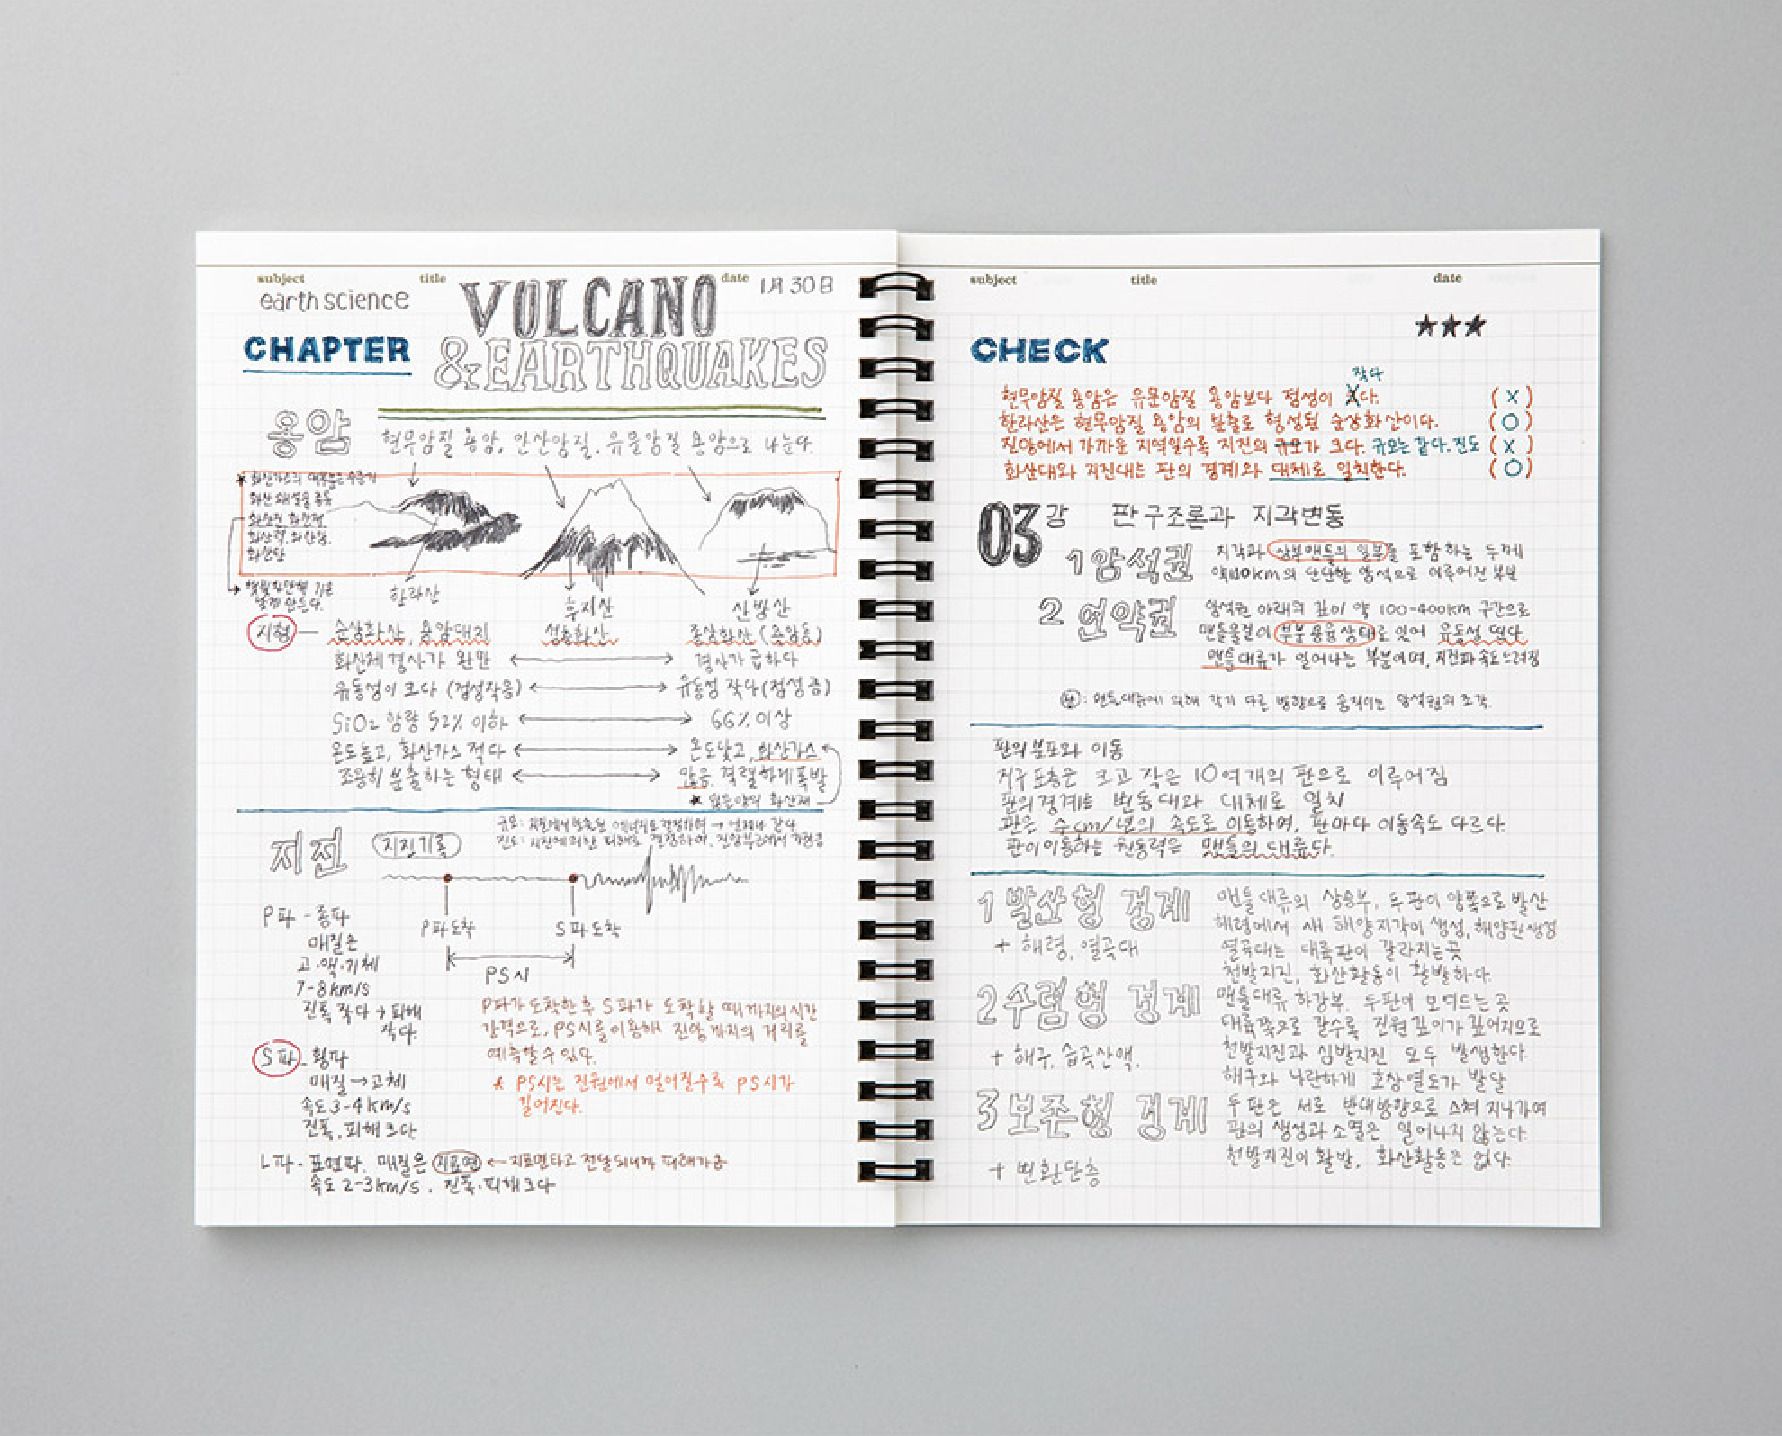 subject
title
date
earth science
VOLCANO
1月 30日
CHAPTER
&EARTHQUAKES
용암
현무암질 용암, 안산암질, 유문암질 용암으로 나눈다.
화산가스의 대부분은 수증기
화산재
화산탄
한라산
후지산
산방산
지형
순상화산, 용암대지
성층화산
종상화산 (종암동)
화산체 경사가 완만
경사가 급하다
유동성이 크다 (점성작음)
유동성 작다 (점성 큼)
SiO2 함량 52% 이하
66% 이상
온도높고, 화산가스 적다
온도낮고, 화산가스
조용히 분출하는 형태
많음. 격렬하게 폭발
★ 많은양의 화산재
지진
지진기록
P파 도착
S파 도착
PS시
P파 - 종파
매질은
고·액·기체
7-8km/s
진폭 작다 → 피해
작다.
P파가 도착한 후 S파가 도착할 때까지의 시간
간격으로, PS시를 이용해 진앙까지의 거리를
예측할 수 있다.
★ PS시는 진원에서 멀어질수록 PS시가
길어진다.
S파 - 횡파
매질 → 고체
속도 3-4km/s
진폭, 피해 크다
L파 - 표면파. 매질은 지표면 ← 지표면타고 전달되니까 피해가큼
속도 2-3km/s. 진폭·피해 크다
subject
title
date
★★★
CHECK
작다
현무암질 용암은 유문암질 용암보다 점성이 다. (X)
한라산은 현무암질 용암의 분출로 형성된 순상화산이다. (O)
진앙에서 가까운 지역일수록 지진의 규모가 크다. 규모는 같다. 진도 (X)
화산대와 지진대는 판의 경계와 대체로 일치한다. (O)
03강 판 구조론과 지각변동
1 암석권
지각과 상부맨틀의 일부를 포함하는 두께
약100km의 단단한 암석으로 이루어진 부분
2 연약권
암석권 아래의 깊이 약 100-400km 구간으로
맨틀물질이 부분 용융 상태로 있어 유동성 띤다.
맨틀대류가 일어나는 부분이며, 지진파 속도 느려짐
판: 맨틀대류에 의해 각기 다른 방향으로 움직이는 암석권의 조각.
판의 분포와 이동
지구 표층은 크고 작은 10여개의 판으로 이루어짐
판의 경계는 변동대와 대체로 일치
판은 수cm/년의 속도로 이동하며, 판마다 이동속도 다르다.
판이 이동하는 원동력은 맨틀의 대류다.
1 발산형 경계
+ 해령, 열곡대
맨틀대류의 상승부, 두 판이 양쪽으로 발산
해령에서 새 해양지각이 생성, 해양판 생성
열곡대는 대륙판이 갈라지는 곳
천발지진, 화산활동이 활발하다.
2 수렴형 경계
+ 해구, 습곡산맥.
맨틀대류 하강부. 두판이 모여드는 곳
대륙쪽으로 갈수록 진원 깊이가 깊어지므로
천발지진과 심발지진 모두 발생한다
해구와 나란하게 호상열도가 발달
3 보존형 경계
+ 변환단층
두 판은 서로 반대방향으로 스쳐 지나가며
판의 생성과 소멸은 일어나지 않는다.
천발지진이 활발, 화산활동은 없다.